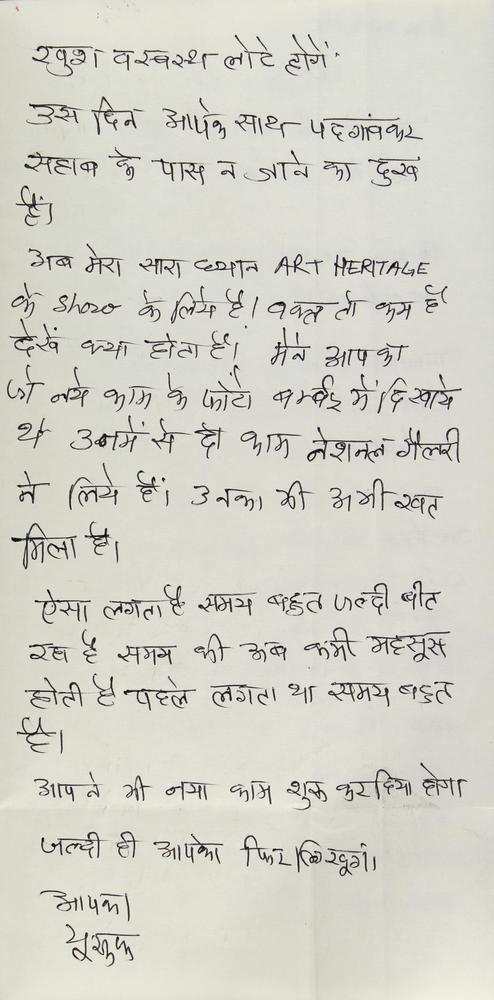 खुश व स्वस्थ लोटे होगें.
उस दिन आपके साथ पदगांवकर
सहाब के पास न जाने का दुख
है।
अब मेरा सारा ध्यान ART HERITAGE
के Show के लिये है। वक्त तो कम है
देखें क्या होता है। मैने आप का
जो नये काम के फोटो बम्बई में दिखाये
थे उनमें से दो काम नेशनल गैलरी
ने लिये हैं। उनका भी अभी खत
मिला है।
ऐसा लगता है समय बहुत जल्दी बीत
रहा है समय की अब कमी महसूस
होती है पहले लगता था समय बहुत
है।
आप ने भी नया काम शुरू कर दिया होगा
जल्दी ही आपको फिर लिखूगां।
आपका
यूसुफ